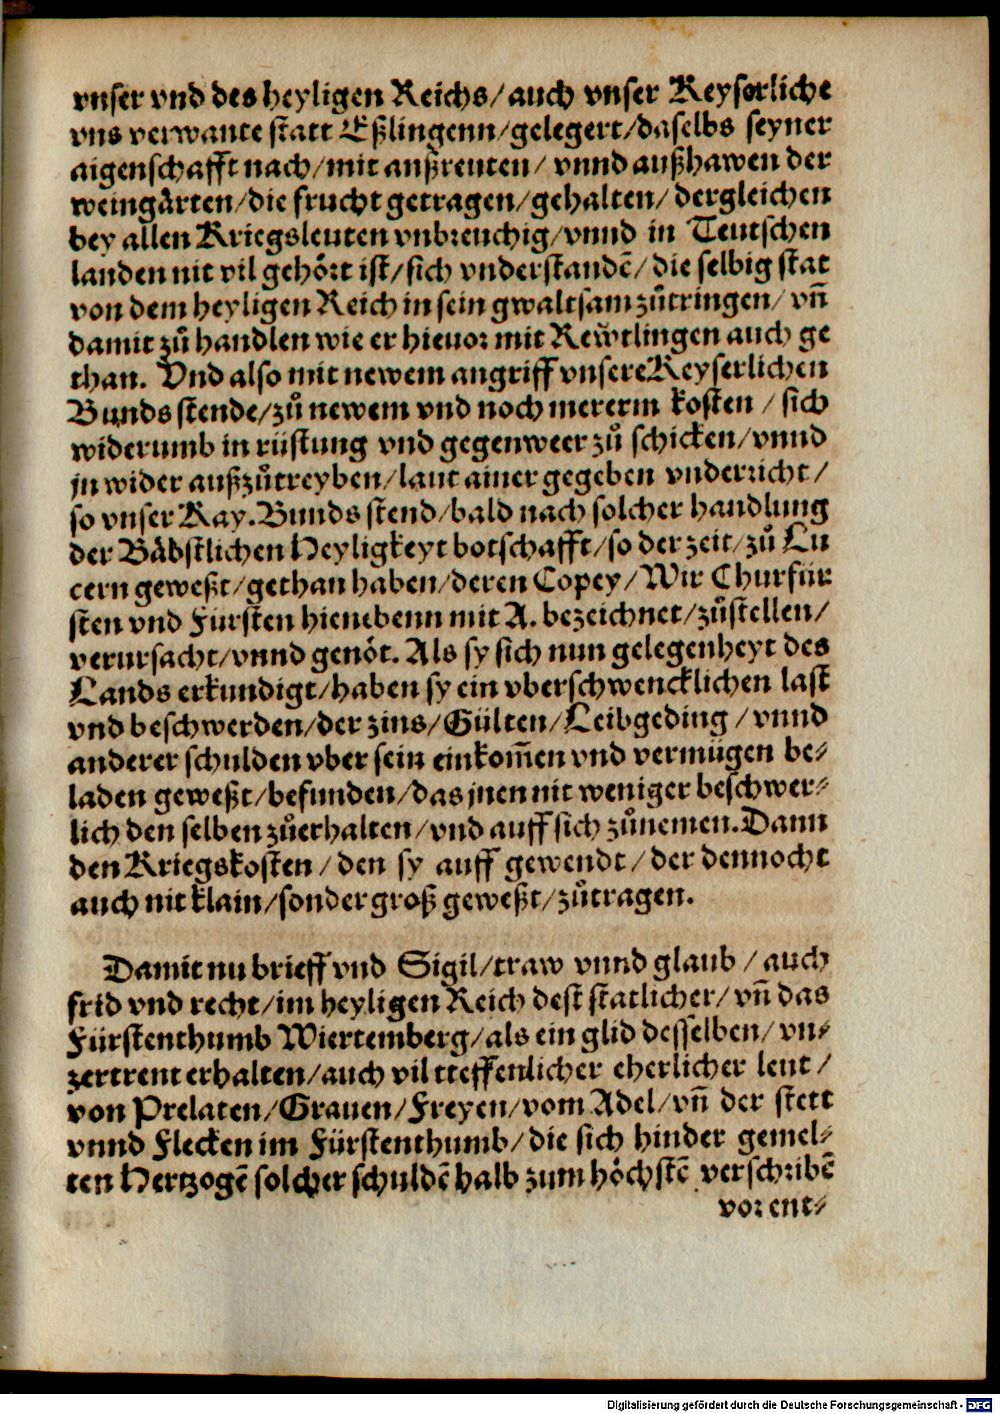 vnser vnd des heyligen Reichs/auch vnser Keyserliche
vns verwante statt Eßlingenn/gelegert/daselbs seyner
aigenschafft nach/mit außreuten/ vnnd außhawen der
weingårten/die frucht getragen/gehalten/ dergleichen
bey allen Kriegsleuten vnbreuchig/vnnd in Teutschen
landen nit vil gehôrt ist/sich vnderstandē/die selbig stat
von dem heyligen Reich in sein gwaltsam zůtringen/ vn̄
damit zů handlen wie er hieuor mit Rewtlingen auch ge
than. Vnd also mit newem angriff vnsere Keyserlichen
Bunds stende/zů newem vnd noch mererm kosten / sich
widerumb in rüstung vnd gegenweer zů schicken/vnnd
jn wider außzůtreyben/laut ainer gegeben vnderricht/
so vnser Kay.Bunds stend/bald nach solcher handlung
der Båbstlichen Heyligkeyt botschafft/so der zeit/zů Lu
cern geweßt/gethan haben/deren Copey/Wir Churfür
sten vnd Fürsten hienebenn mit A. bezeichnet/zůstellen/
verursacht/vnnd genôt. Als sy sich nun gelegenheyt des
Lands erkundigt/haben sy ein vberschwencklichen last
vnd beschwerden/der zins/Gülten/Leibgeding /vnnd
anderer schulden vber sein einkom̄en vnd vermügen be⸗
laden geweßt/befunden/das jnen nit weniger beschwer⸗
lich den selben zůerhalten/vnd auff sich zůnemen.Dann
den Kriegskosten/den sy auff gewendt/der dennocht
auch nit klain/sonder groß geweßt/zůtragen.
Damit nu brieff vnd Sigil/traw vnnd glaub /auch
frid vnd recht/im heyligen Reich dest statlicher/vn̄ das
Fürstenthumb Wiertemberg/als ein glid desselben/vn⸗
zertrent erhalten/auch vil treffenlicher eherlicher leut/
von Prelaten/Grauen/Freyen/vom Adel/vn̄ der stett
vnnd Flecken im Fürstenthumb/die sich hinder gemel⸗
ten Hertzogē solcher schuldē halb zum hôchstē verschribē
vor ent⸗
Digitalisierung gefördert durch die Deutsche Forschungsgemeinschaft - DFG